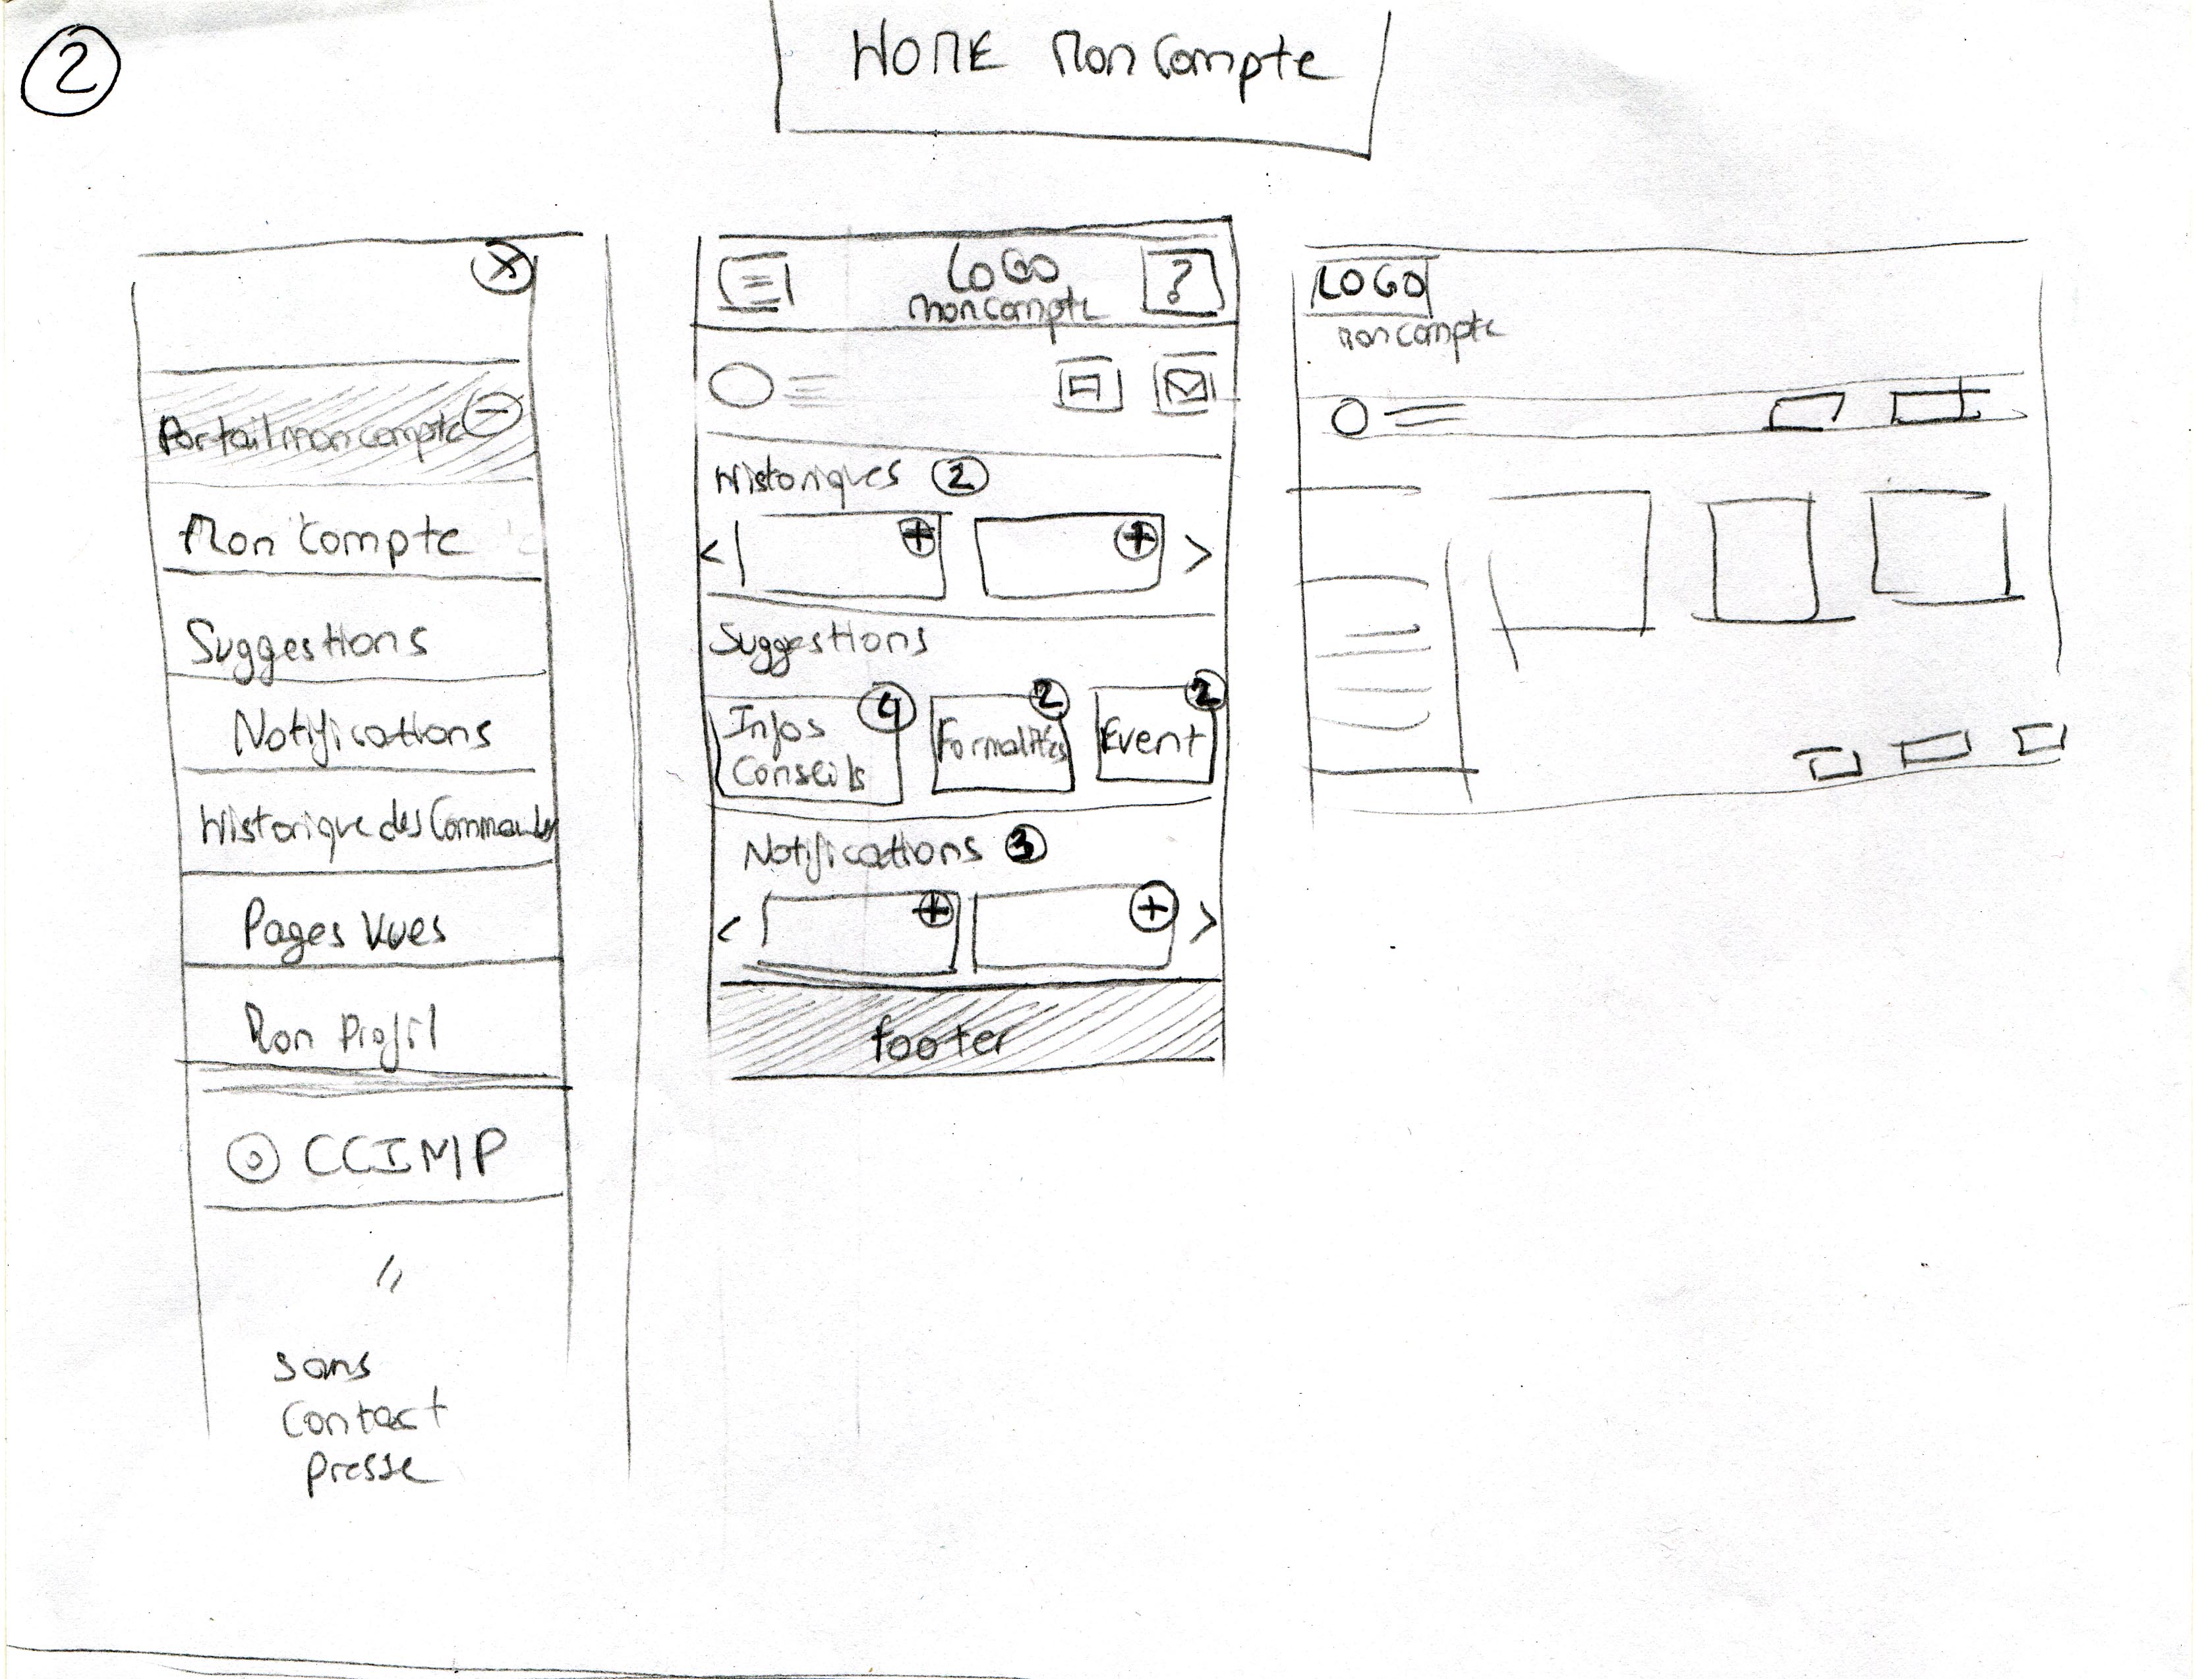 2
HOME Mon Compte
X
Portail mon compte -
Mon Compte
Suggestions
Notifications
Historique des Commandes
Pages Vues
Mon Profil
CCIMP
"
sans
Contact
Presse
LOGO
mon compte
?
Historiques 2
< + + >
Suggestions
Infos
Conseils
4
Formalités
2
Event
2
Notifications 3
< + + >
footer
LOGO
mon compte